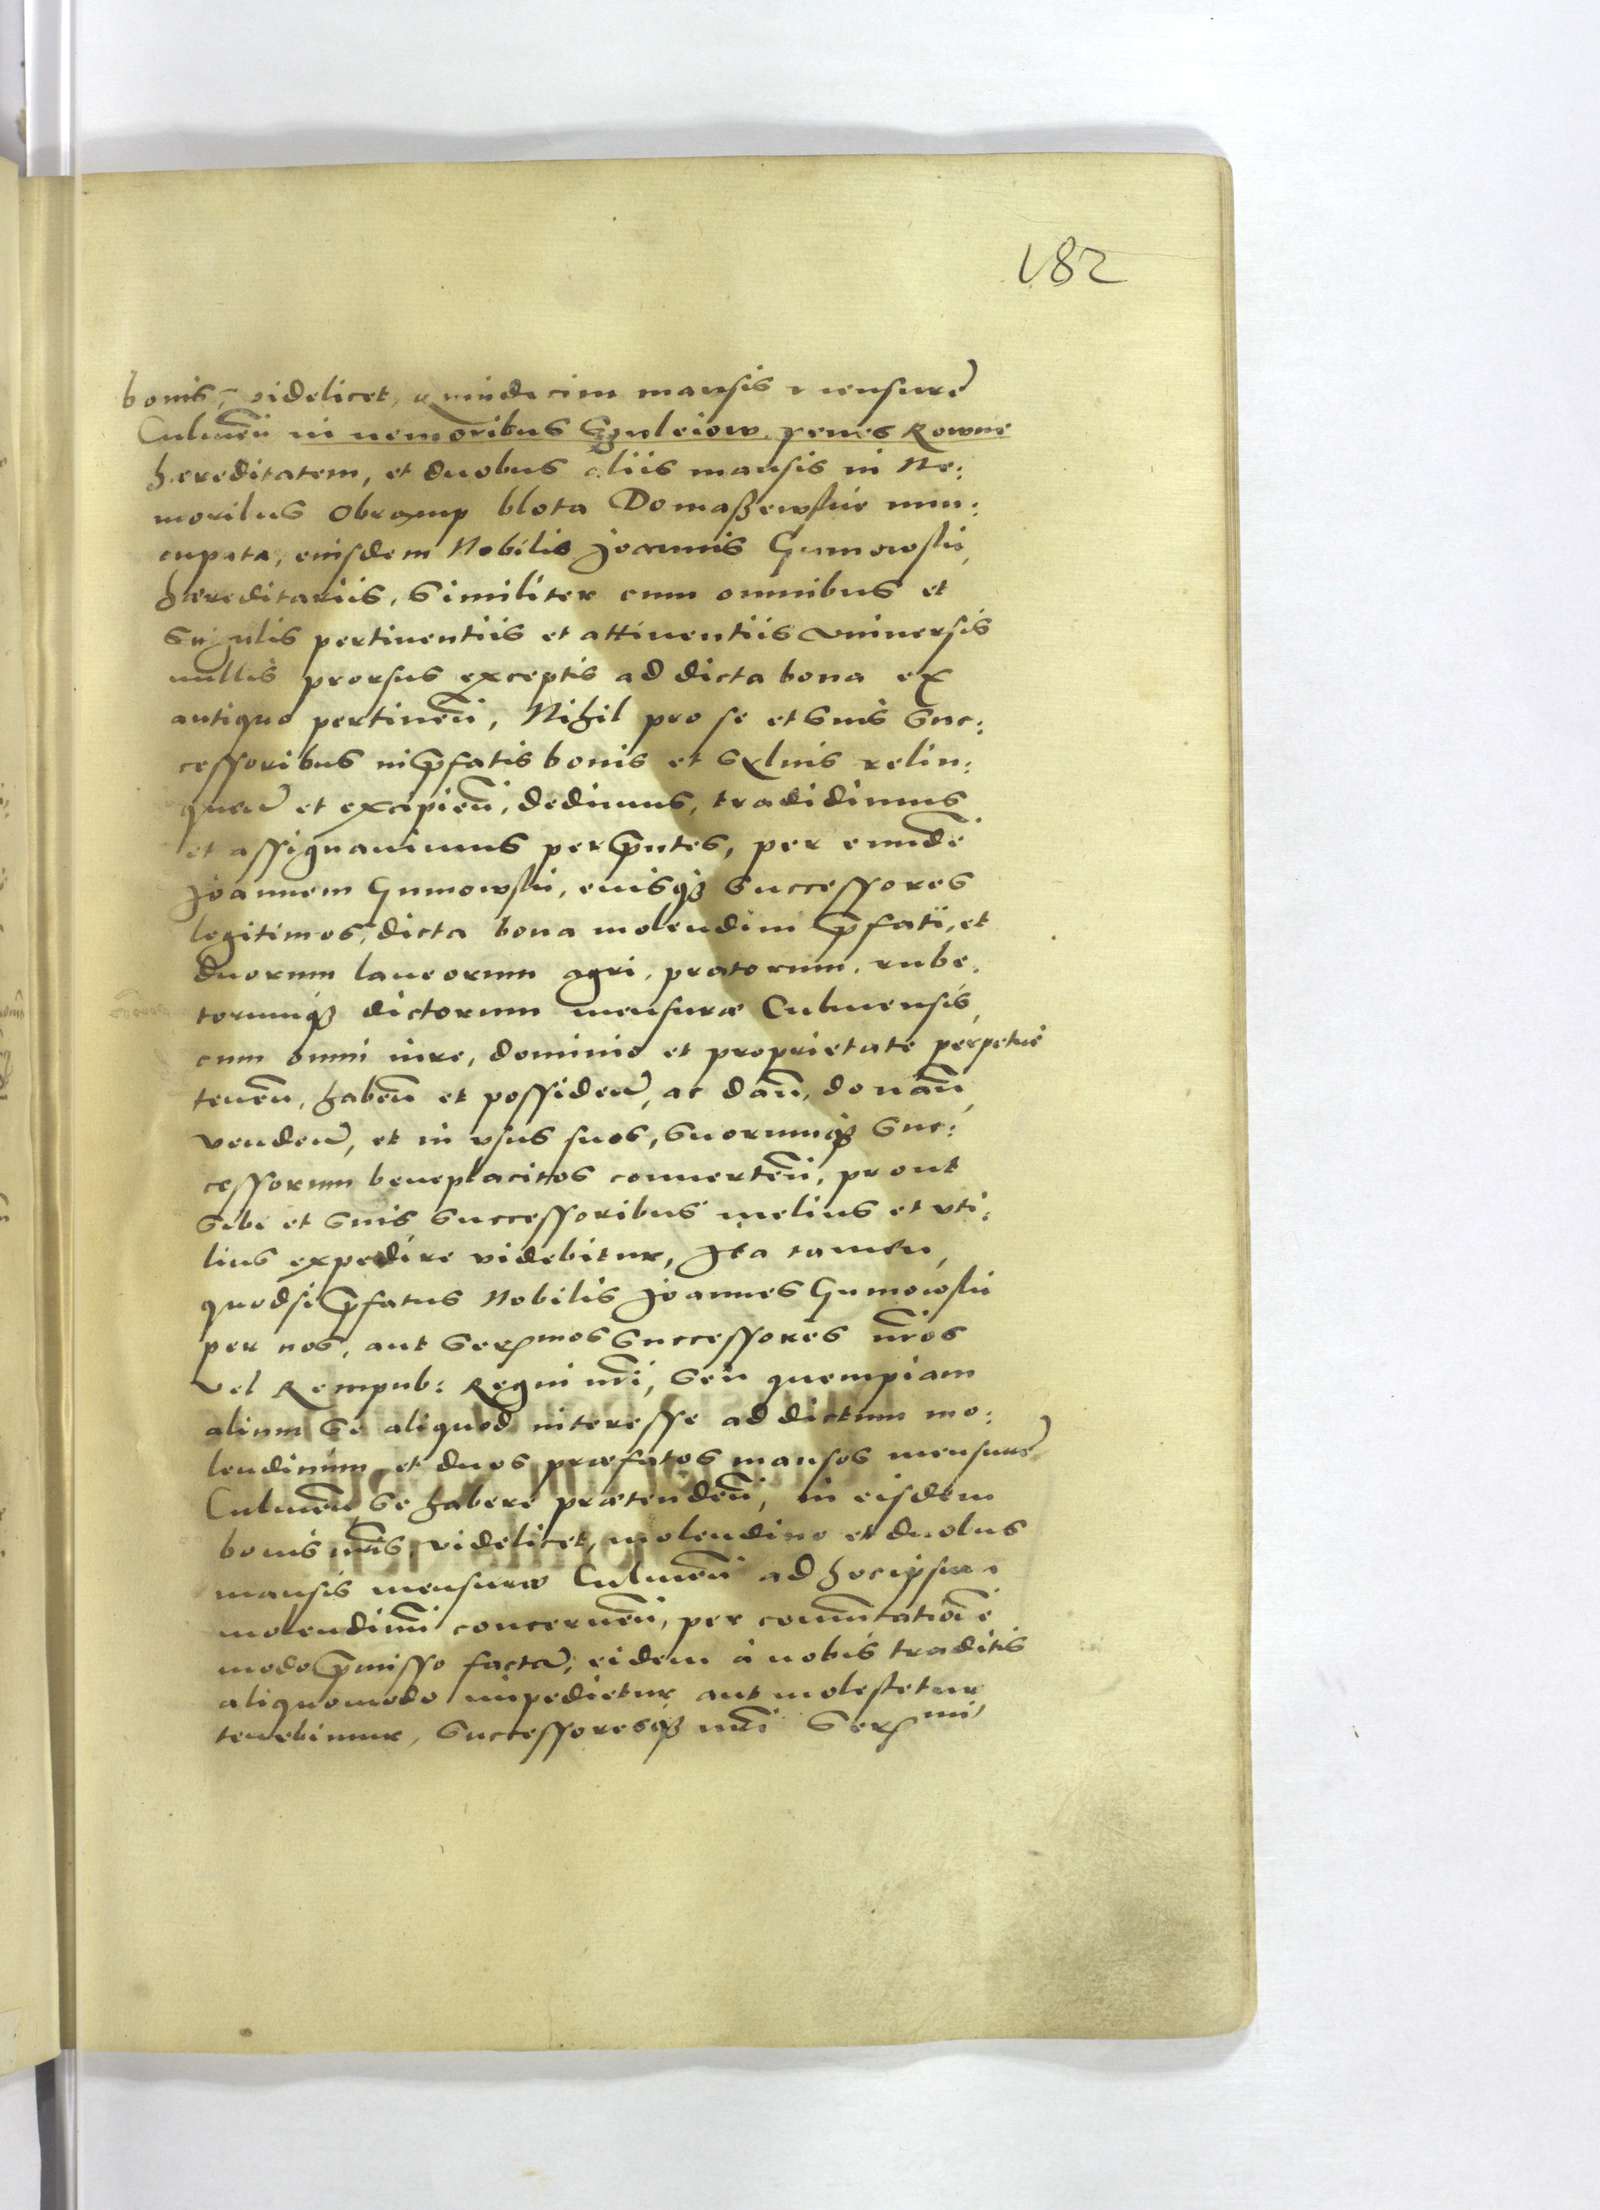 182
bonis, videlicet, quindecim mansis mensuræ
Culmeñ in nemoribus Sguleiow penes Rowne
hereditatem, et duobus aliis mansis in Ne:
moribus Obramp blota Domaszewskie nun:
cupata, eiusdem Nobilis Joannis Gumowski,
hæreditariis, Similiter cum omnibus et
Singulis pertinentiis et attinentiis vniuersis
nullis prorsus exceptis ad dicta bona ex
antiquo pertineñ, Nihil pro se et suis Suc:
cessoribus in p̃fatis bonis et Syluis relin:
queñ et excipieñ, dedimus, tradidimus
et assignauimus per p̃ntes, per eundẽ
Joannem Gumowski, eiusq3 Successores
legitimos, dicta bona molendini p̃fati, et
duorum laneorum agri, pratorum, rube:
torumq3 dictorum mensuræ Culmensis,
cum omni iure, dominio et proprietate perpetue
teneñ, habeñ et possideñ, ac dañ, donañ,
vendeñ, et in vsus suos, Suorumq3 Suc:
cessorum beneplacitos conuerteñ, prout
Sibi et Suis Successoribus melius et vti:
lius expedire videbitur, Ita tamen,
quodsi p̃fatus Nobilis Joannes Gumowski
per nos, aut Ser^mos Successores nr̃os
vel Rempub: Regni nr̃i, Seu quempiam
alium Se aliquod interesse ad dictum mo:
lendinum et duos præfatos mansos mensuræ
Culmeñ Se habere prætendeñ, in eisdem
bonis nr̃is, videlicet, molendino et duobus
mansis mensuræ Culmeñ ad hocipsum
molendinũ concerneñ, per comutationẽ
modo p̃misso factã, eidem à nobis traditis
aliquomodo impedietur aut molestetur
tenebimur, Successoresq3 nr̃i Ser^mi